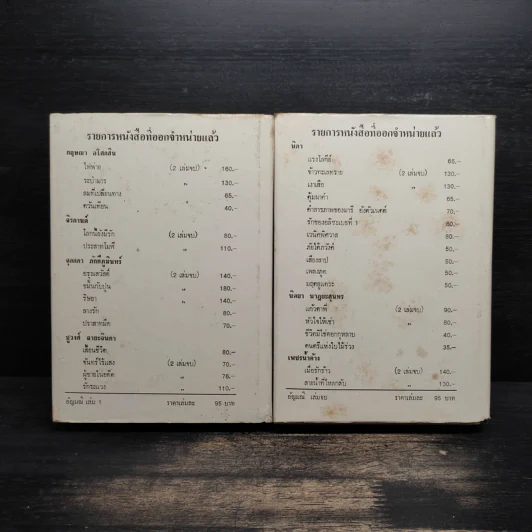 รายการหนังสือที่ออกจำหน่ายแล้ว
กฤษณา อโศกสิน
ไฟพ่าย (2 เล่มจบ) 160.-
ระบำมาร " 130.-
ลมที่เปลี่ยนทาง " 65.-
ควันเทียน " 40.-
จิรดานต์
โลกนี้ยังมีรัก (2 เล่มจบ) 80.-
ประสาทโมฬี " 110.-
จุลลดา ภักดีภูมินทร์
อรุณสวัสดิ์ (2 เล่มจบ) 140.-
ขมิ้นกับปูน " 180.-
ริษยา " 140.-
ลางรัก 80.-
ปราสาทมืด 70.-
ชูวงศ์ ฉายะจินดา
เลื้อนชีวิต 80.-
จันทร์ไร้แสง (2 เล่มจบ) 70.-
ผู้ชายในอดีต " 75.-
รักระแวง " 110.-
อัญมณี เล่ม 1 ราคาเล่มละ 95 บาท
รายการหนังสือที่ออกจำหน่ายแล้ว
นิดา
แรงโลกีย์ 65.-
ข้าวทะเลทราย (2 เล่มจบ) 130.-
เงาเสือ " 130.-
คุ้มนาคำ 65.-
คำสารภาพของนารี 70.-
รักของอลิซเบธที่ 1 60.-
เวนิศพิศวาส 80.-
ภัยใต้ภวังค์ 80.-
เสี่ยงสาป 50.-
เพลงยุค 80.-
มฤตยูแคระ 50.-
นิตยา นาฏยะสุนทร
แก้วตาพี่ (2 เล่มจบ) 90.-
หัวใจให้เช่า " 80.-
ชีวิตมิใช่ดอกกุหลาบ " 40.-
ดนตรีแห่งใบไม้ร่วง " 35.-
เพชรน้ำค้าง
เมื่อรักร้าง (2 เล่มจบ) 140.-
สายน้ำที่ไหลกลับ " 130.-
อัญมณี เล่มจบ ราคาเล่มละ 95 บาท